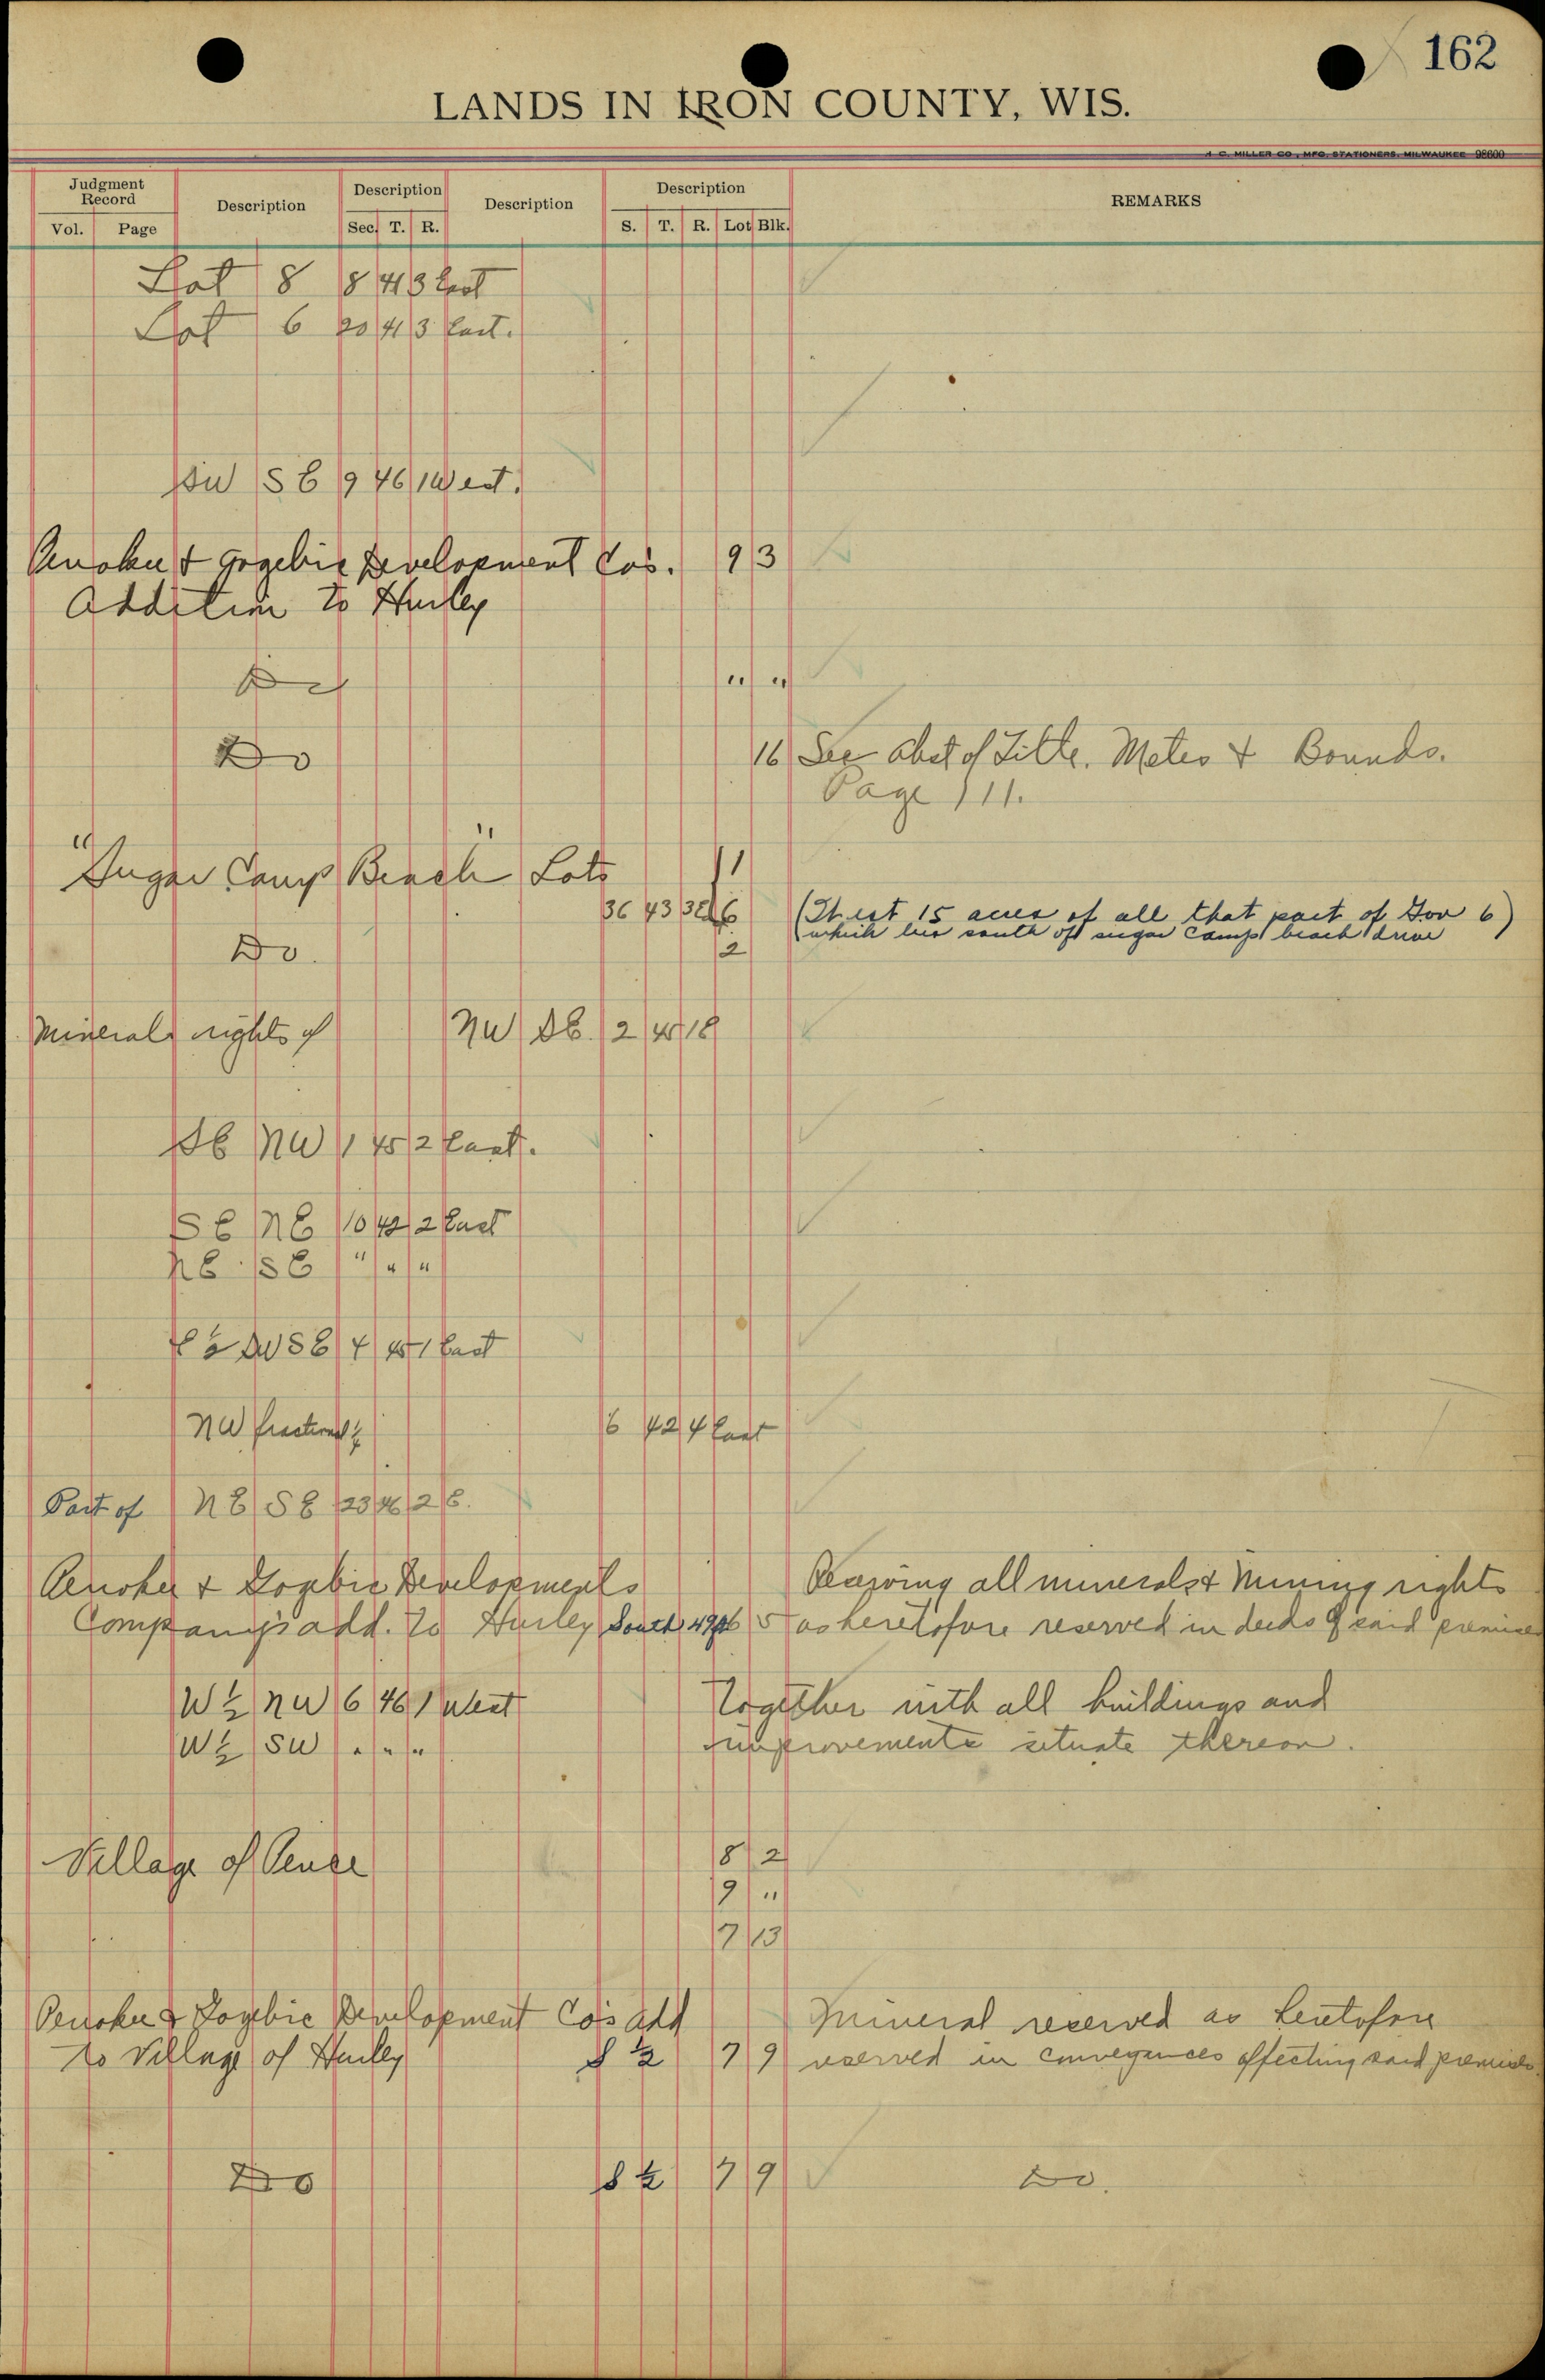 162
LANDS IN IRON COUNTY, WIS.
H. C. MILLER CO., MFG. STATIONERS, MILWAUKEE 98600
Judgment Record Description Description Description Description REMARKS
Vol. Page Sec. T. R. S. T. R. Lot Blk.
Lot 8 8 41 3 East
Lot 6 20 41 3 East.
SW SE 9 46 1 West.
Penokee & Gogebic Development Cos. 9 3
Addition to Hurley
Do " "
Do 16 See Abst of Title. Metes & Bounds.
Page 111.
"Sugar Camp Beach" Lots 11
36 43 3E 6 (The est 15 acres of all that part of Gov 6)
which lies south of sugar camp beach drive
Do. 2
Mineral rights of NW SE. 2 45 1E
SE NW 1 45 2 East.
SE NE 10 42 2 East
NE SE " " "
E ½ SW SE 4 45 1 East
NW fractional ¼ 6 42 4 East
Part of NE SE 23 46 2 E.
Penokee & Gogebic Developments Reserving all minerals & Mining rights
Company's add. to Hurley South 49ft 6 5 as heretofore reserved in deeds of said premises
W ½ NW 6 46 1 West Together with all buildings and
W ½ SW " " " improvements situate thereon.
Village of Pence 8 2
9 "
7 13
Penokee & Gogebic Development Co's Add Mineral reserved as heretofore
to Village of Hurley S ½ 7 9 reserved in conveyances affecting said premises
Do S ½ 7 9 Do.